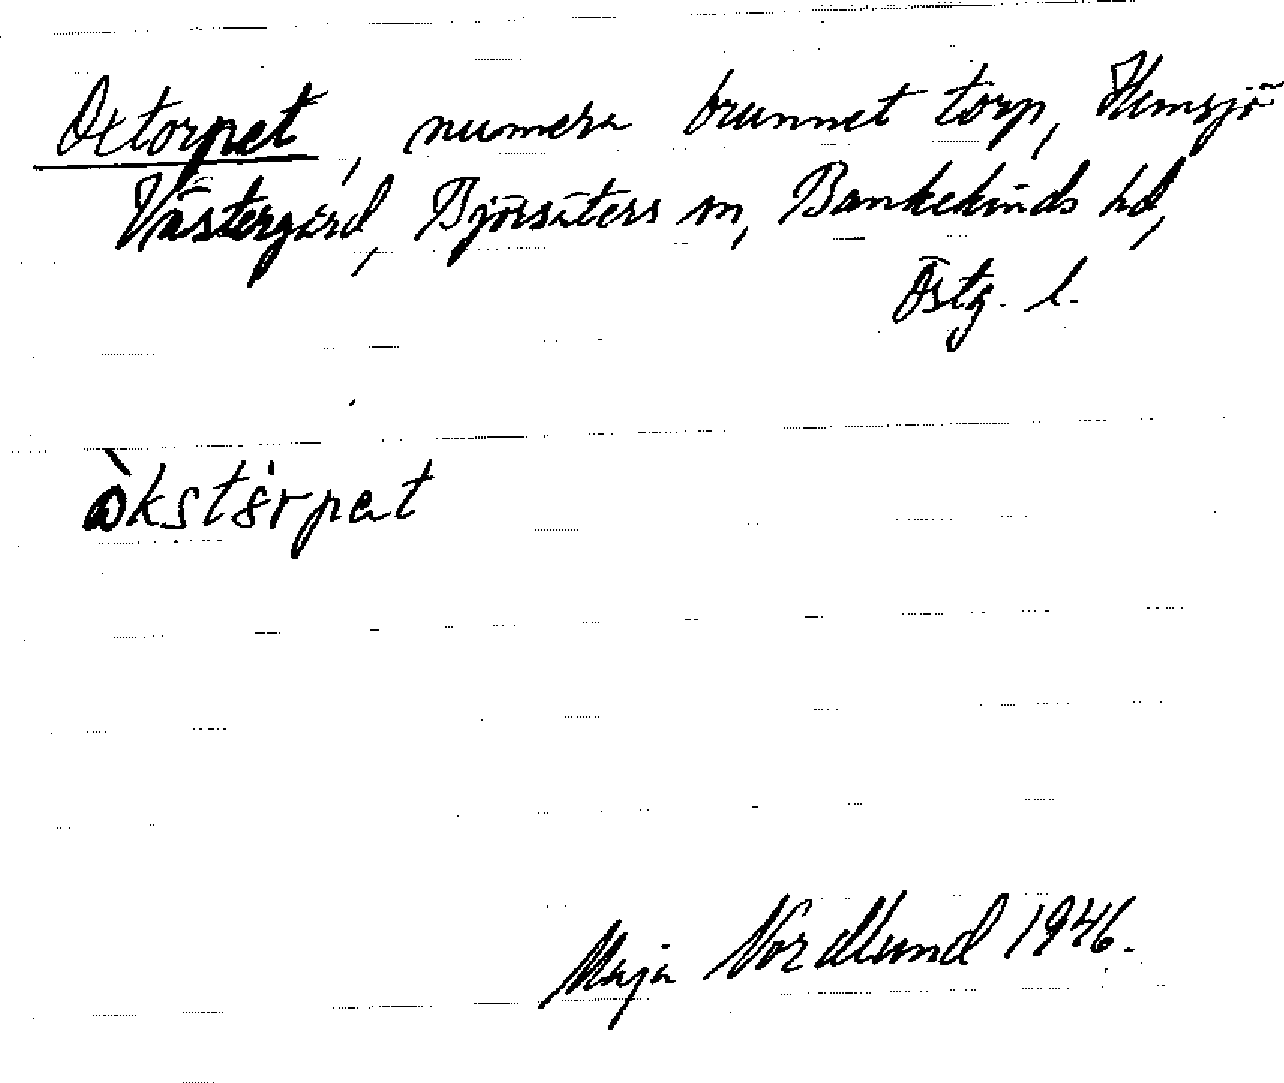 Oxtorpet, numera brunnet torp, Hemsjö
Västergård, Björsäters sn, Bankekinds hd,
Östg. l.
òkstórpet
Maja Nordlund 1946.